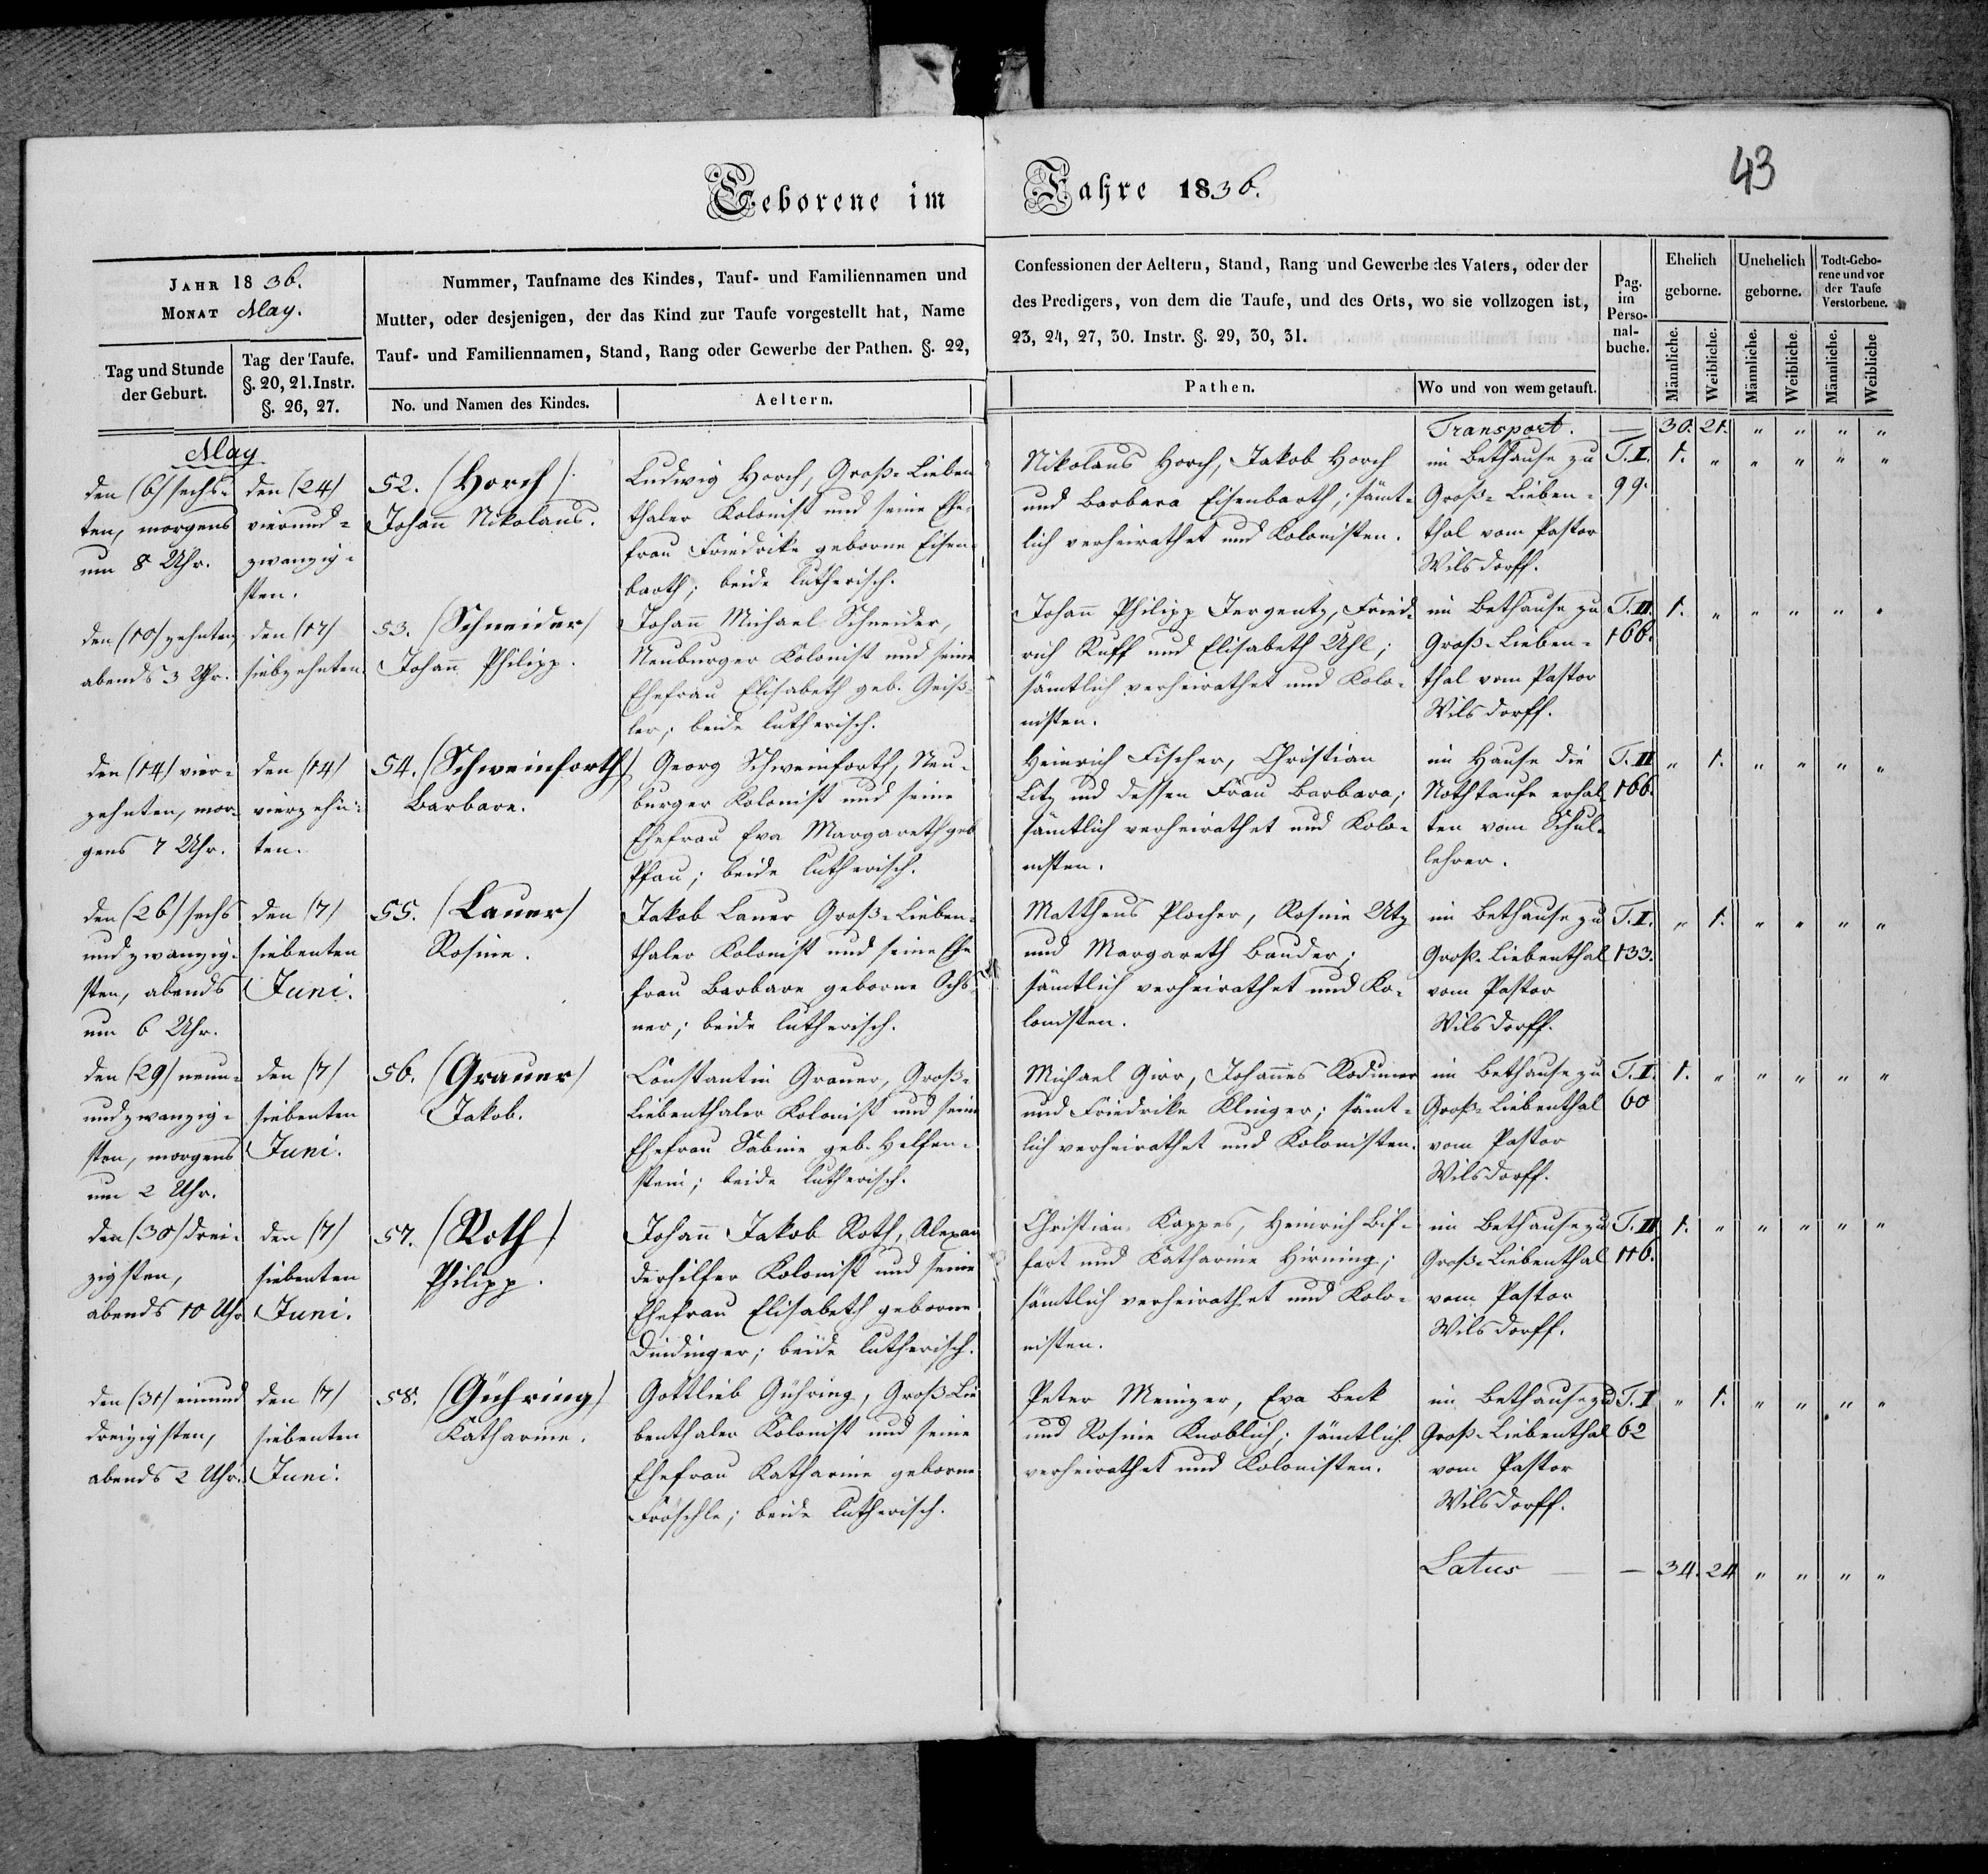 43
Geborene im Jahre 1836.
JAHR 1836.
MONAT May.
Nummer, Taufname des Kindes, Tauf- und Familiennamen und
Mutter, oder desjenigen, der das Kind zur Taufe vorgestellt hat, Name
Tauf- und Familiennamen, Stand, Rang oder Gewerbe der Pathen. §. 22,
Confessionen der Aeltern, Stand, Rang und Gewerbe des Vaters, oder der
des Predigers, von dem die Taufe, und des Orts, wo sie vollzogen ist,
23, 24, 27, 30. Instr. §. 29, 30, 31.
Tag und Stunde
der Geburt.
Tag der Taufe.
§. 20, 21. Instr.
§. 26, 27.
No. und Namen des Kindes.
Aeltern.
Pathen.
Wo und von wem getauft.
Pag.
im
Perso-
nal-
buche.
Ehelich
geborne.
Unehelich
geborne.
Todt-Gebo-
rene und vor
der Taufe
Verstorbene.
Männliche.
Weibliche.
Männliche.
Weibliche.
Männliche.
Weibliche
Transport. — 30. 21. " " " "
May
den (6) sechs-
ten, morgens
um 8 Uhr.
den (24)
vierund-
zwanzig-
sten.
52. (Horch)
Johan Nikolaus.
Ludwig Horch, Groß-Lieben
thaler Kolonist und seine Ehe-
frau Friedrike geborne Eisen-
barth; beide lutherisch.
Nikolaus Horch, Jakob Horch
und Barbara Eisenbarth; sämt-
lich verheirathet und Kolonisten.
im Bethause zu
Groß-Lieben-
thal vom Pastor
Wilsdorff.
T. I.
99.
1. " " " " "
den (10) zehnten,
abends 3 Uhr.
den (17)
siebzehnten
53. (Schneider)
Johann Philipp.
Johann Michael Schneider,
Neuburger Kolonist und seine
Ehefrau Elisabeth geb. Geiß-
ler; beide lutherisch.
Johann Philipp Jergentz, Fried-
rich Ruff und Elisabeth Uhl;
sämtlich verheirathet und Kolo-
nisten.
im Bethause zu
Groß-Lieben-
thal vom Pastor
Wilsdorff.
T. II.
166.
1. " " " " "
den (14) vier-
zehnten, mor-
gens 7 Uhr.
den (14)
vierzehn-
ten.
54. (Schweinforth)
Barbara.
Georg Schweinforth, Neu-
burger Kolonist und seine
Ehefrau Eva Margareth geb
Pfau; beide lutherisch.
Heinrich Fischer, Christian
Litz und dessen Frau Barbara;
sämtlich verheirathet und Kolo-
nisten.
im Hause die
Nothtaufe erhal-
ten vom Schul-
lehrer.
T. II
166.
" 1. " " " "
den (26) sechs
und zwanzig-
sten, abends
um 6 Uhr.
den (7)
siebenten
Juni.
55. (Lauer)
Rosine.
Jakob Lauer Groß-Lieben-
thaler Kolonist und seine Ehe
frau Barbara geborne Ochs-
ner; beide lutherisch.
Mattheus Plocher, Rosine Utz
und Margareth Bauder;
sämtlich verheirathet und Ko-
lonisten.
im Bethause zu
Groß-Liebenthal
vom Pastor
Wilsdorff.
T. I.
133.
" 1. " " " "
den (29) neun-
und zwanzig-
sten, morgens
um 2 Uhr.
den (7)
siebenten
Juni.
56. (Grauer)
Jakob.
Constantin Grauer, Groß-
Liebenthaler Kolonist und seine
Ehefrau Sabine geb. Helfen-
stein; beide lutherisch.
Michael Girr, Johannes Rodimer
und Friedrike Klinger; sämt-
lich verheirathet und Kolonisten.
im Bethause zu
Groß-Liebenthal
vom Pastor
Wilsdorff.
T. I.
60
1. " " " " "
den (30) drei-
zigsten,
abends 10 Uhr
den (7)
siebenten
Juni.
57. (Roth)
Philipp.
Johann Jakob Roth, Alexan
derhilfer Kolonist und seine
Ehefrau Elisabeth geborne
Dindinger; beide lutherisch.
Christian Kappes, Heinrich Bif-
fart und Katharine Hirning;
sämtlich verheirathet und Kolo-
nisten.
im Bethause zu
Groß-Liebenthal
vom Pastor
Wilsdorff.
T. II
116.
1. " " " " "
den (31) einund
dreizigsten,
abends 2 Uhr.
den (7)
siebenten
Juni.
58. (Gühring)
Katharine.
Gottlieb Gühring, Groß-Lie
benthaler Kolonist und seine
Ehefrau Katharine geborne
Fröschle; beide lutherisch.
Peter Meinzer, Eva Beck
und Rosine Knoblich; sämtlich
verheirathet und Kolonisten.
im Bethause zu
Groß-Liebenthal
vom Pastor
Wilsdorff.
T. I
62
" 1. " " " "
Latus — — 34. 24 " " " "